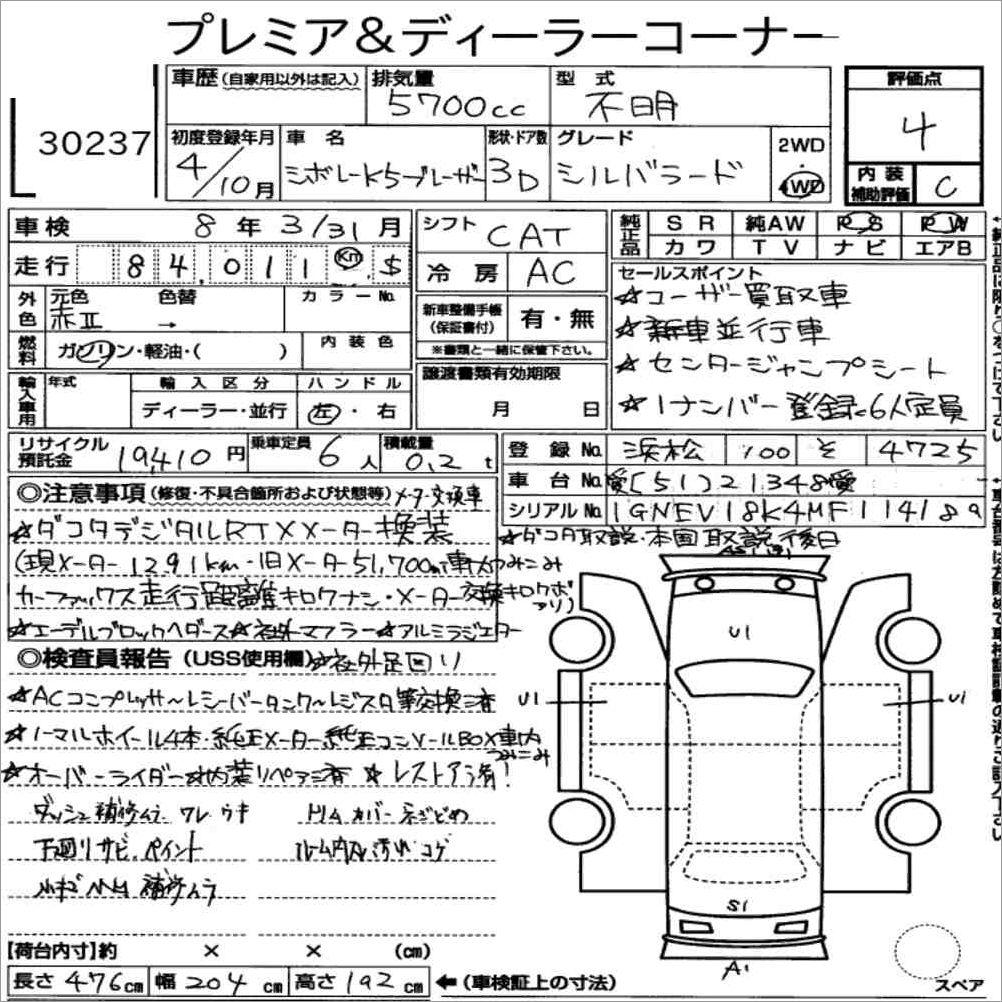 プレミア&ディーラーコーナー
30237
車歴(自家用以外は記入) 排気量 5700cc 型式 不明
評価点 4
内装補助評価 C
初度登録年月 4/10月 車名 シボレーK5ブレーザー 形状・ドア数 3D グレード シルバラード 2WD 4WD
車検 8年3/31月
シフト CAT
純正品 SR 純AW PS PW
カワ TV ナビ エアB
走行 84,011 Km .S
冷房 AC
外色 元色 赤II 色替 → カラーNo.
燃料 ガソリン・軽油・( ) 内装色
新車整備手帳(保証書付) 有・無
※書類と一緒に保管下さい。
輸入車用 年式 輸入区分 ディーラー・並行 ハンドル 左・右
譲渡書類有効期限 月 日
セールスポイント
☆ユーザー買取車
☆新車並行車
☆センタージャンプシート
☆1ナンバー登録 6人定員
リサイクル預託金 19,410円 乗車定員 6人 積載量 0.2t
登録No. 浜松 100 そ 4725
車台No. 愛[51]21348愛
シリアルNo. 1GNEV18K4MF114189
◎注意事項(修復・不具合箇所および状態等)メーター交換車
☆ダコタデジタルRTXメーター換装
(現メーター1291km・旧メーター51,700m車内つみこみ
カーファックス走行距離キロクナシ・メーター交換キロクボアリ)
☆エーデルブロックヘダース☆社外マフラー☆アルミラジエター
☆ダコタ取説・本国取説後日
◎検査員報告(USS使用欄)☆社外足回り
☆ACコンプレッサ~レシーバータンク~レジスタ等交換済
☆ノーマルホイール4本・純正メーター純正コンソールBOX車内つみこみ
☆オーバーライダー☆内装リペア済 ☆レストア済!
ダッシュ補修ムラ ワレ ウキ
下廻りサビ、ペイント
ルーム内汚れコゲ
補修ムラ
U1
U1
U1
S1
A1
スペア
【荷台内寸】約 × × (cm)
長さ476cm 幅204cm 高さ192cm ←(車検証上の寸法)